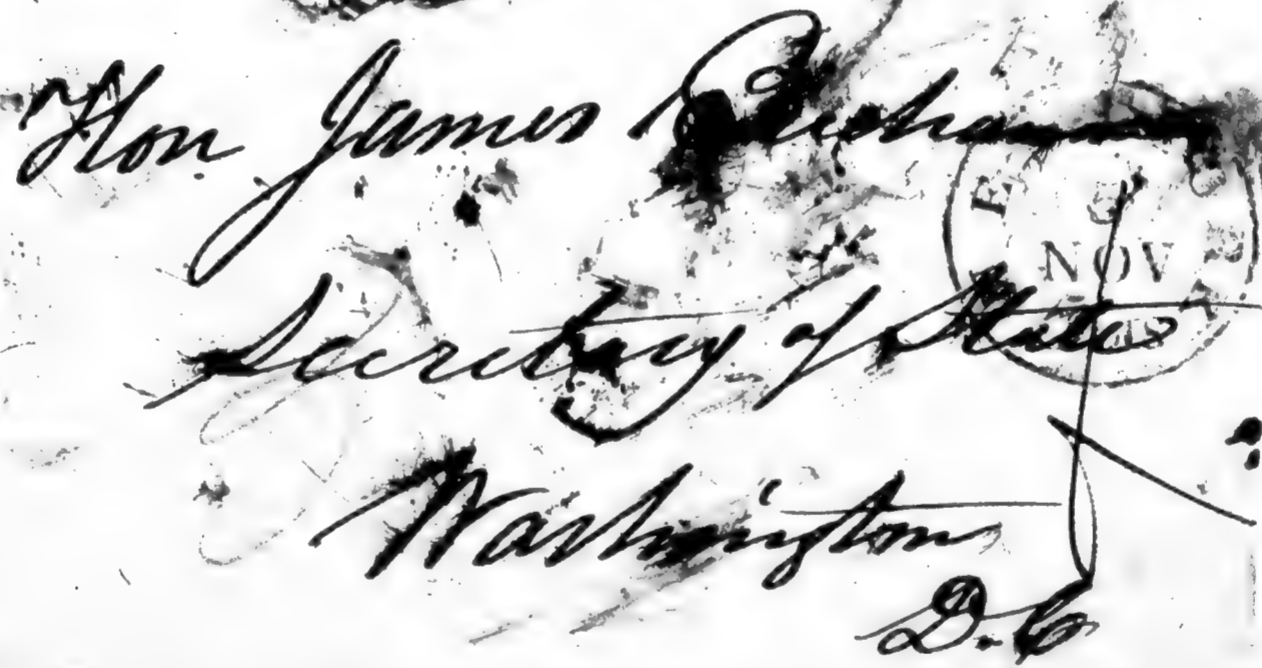 Hon James Buchanan
NOV
Secretary of State
Washington
D.C